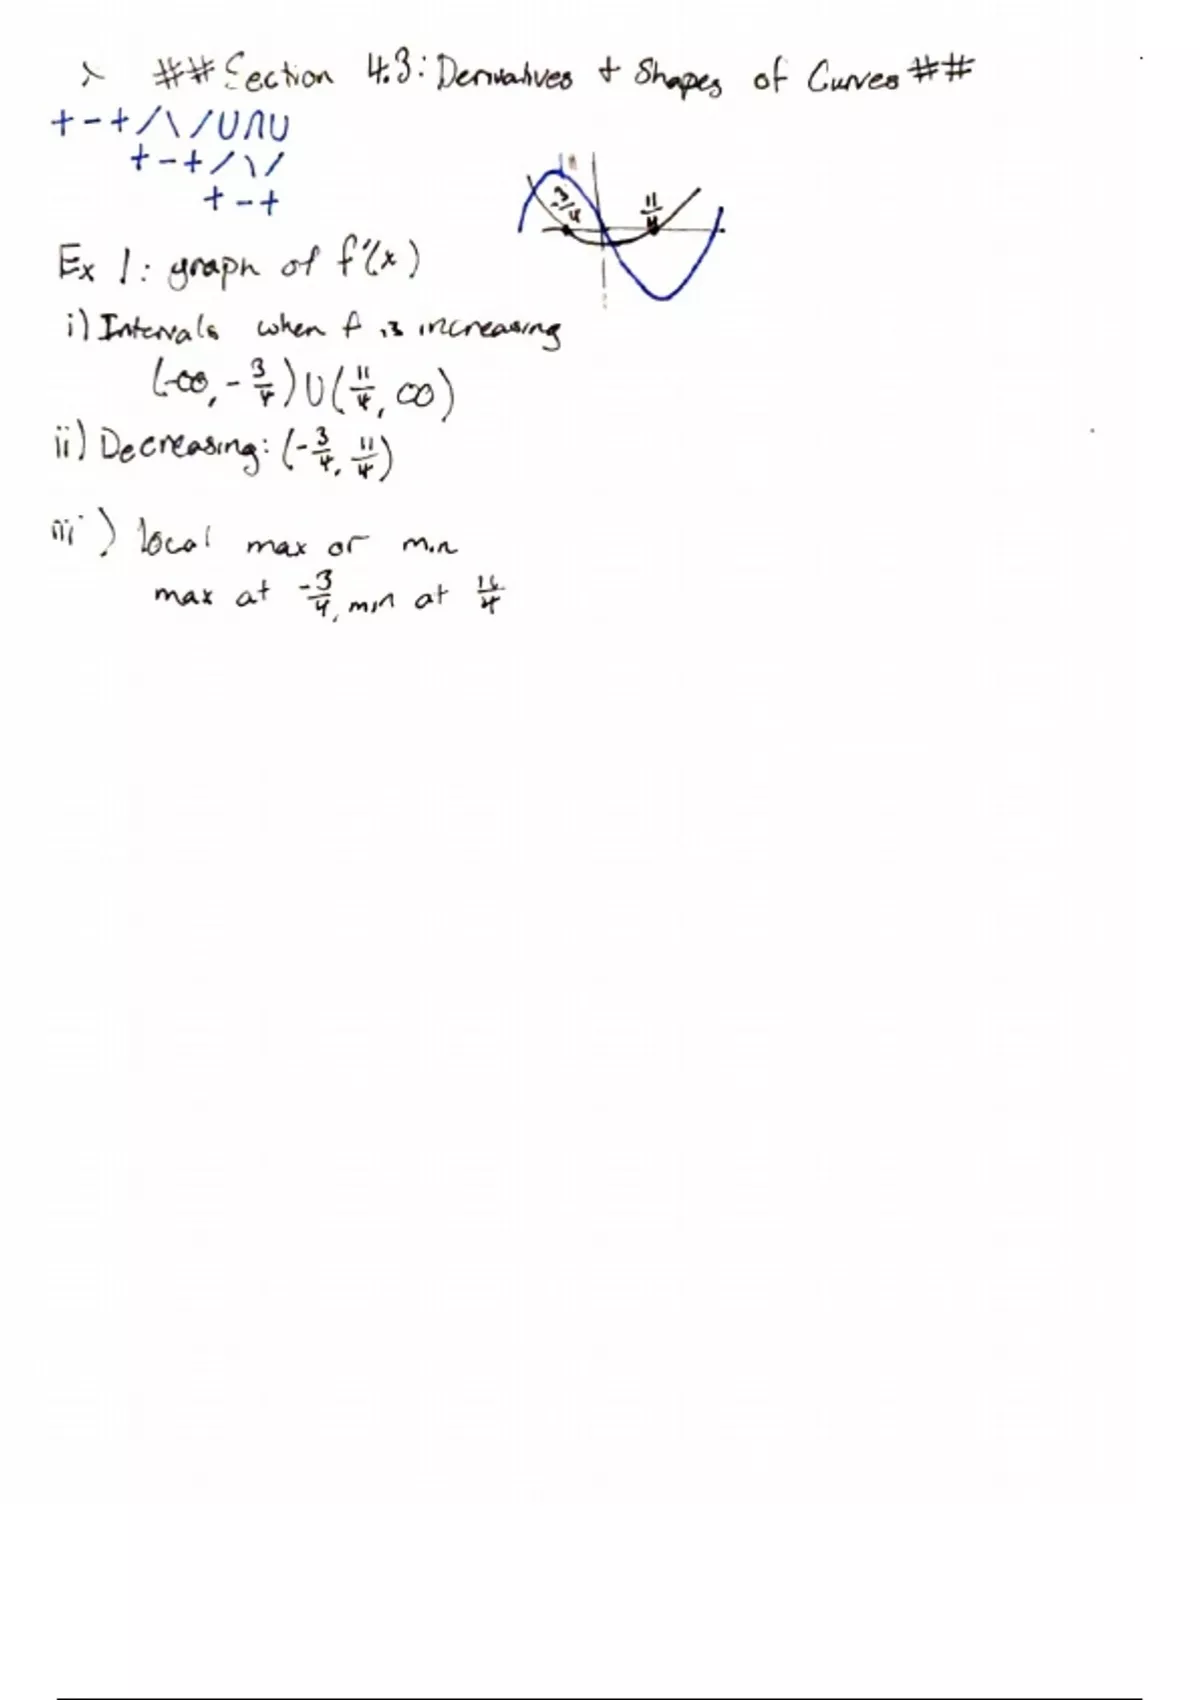 ## Section 4.3: Derivatives + Shapes of Curves ##
+ - + / \ / U ∩ U
+ - + / \ /
+ - +
-3/4
11/4
Ex 1: graph of f'(x)
i) Intervals when f is increasing
(-∞, -3/4) U (11/4, ∞)
ii) Decreasing: (-3/4, 11/4)
iii) local max or min
max at -3/4, min at 11/4